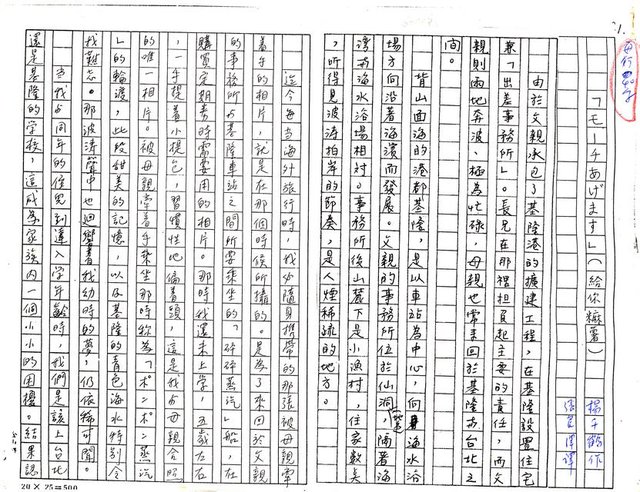 1.
「モーチあげます」(給你
楊千鶴作
由於父親承包了基隆港的擴建工程，在基隆設置住宅
兼「出差事務所」。長兄在那裡担負起主要的責任，而父
親則兩地奔波，極為忙碌，母親也常來回於基隆与台北之
間。
背山面海的港都基隆，是以車站為中心，向海水浴
場方向沿著海濱而發展。父親的事務所位於仙洞，隔著
海水浴場相對。事務所後山麓下是小漁村，住家數
，所得見波濤拍岸的節奏，是人煙稀疏的地方。
迄今每當海外旅行時，我必隨身携帶的那張被母親牽
着手的相片，就是在那個時候所攝的。是為了來回於父親
的事務所与基隆車站之間所要乘坐的「碎碎蒸汽船」，在
購買定期券時需要用的相片。那時我還未上學，五歲左右
，一手提着小提包，習慣性地偏着頭，這是我与母親合照
的唯一相片。被母親牽着手乘坐那時称為「ポンポン蒸汽
」的輪渡，此段甜美的記憶，以及基隆的青色海水特別令
我難忘。那波濤聲中也迴響著我幼時的夢，仍依稀可聞。
當我与同年的侄兒到達入學年齡時，我們是該上台北
還是基隆的学校，這成為家族內一個小小的困擾。結果認
20×25=500